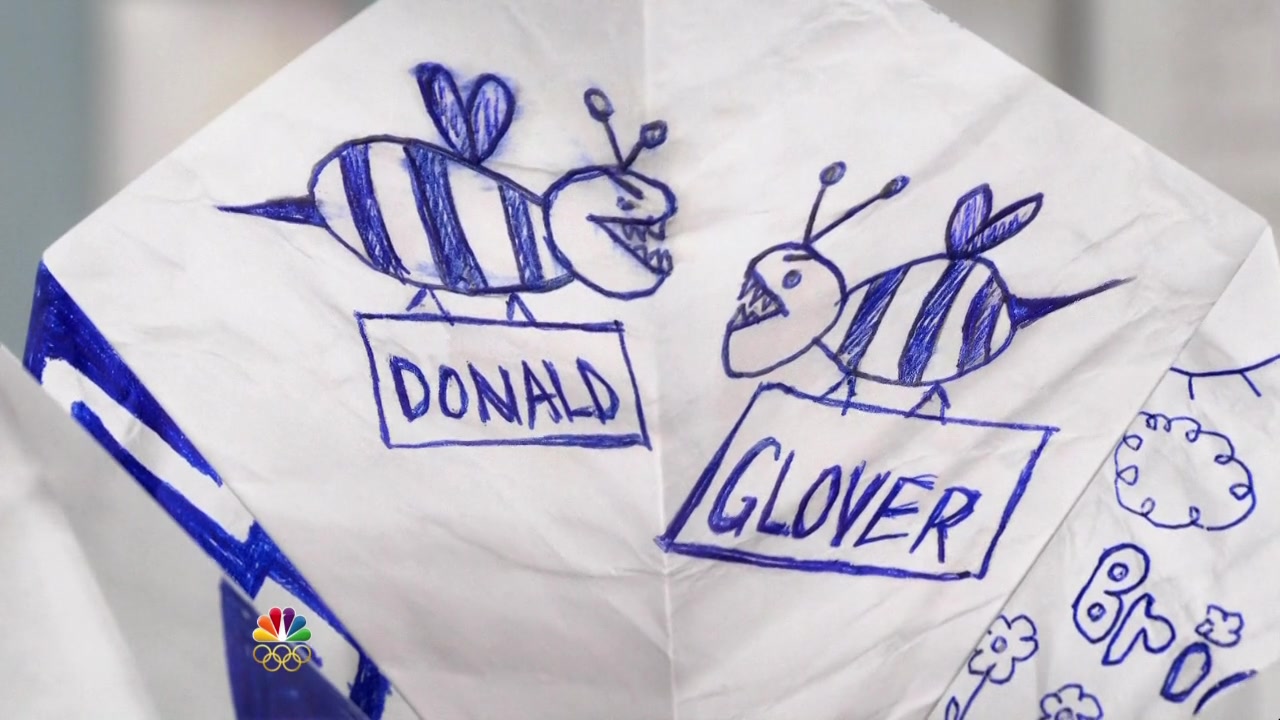 DONALD
GLOVER